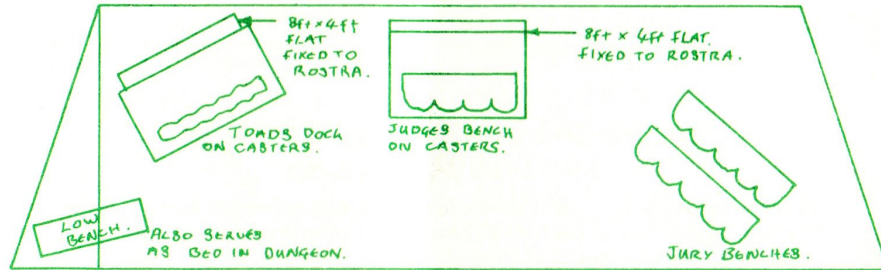 8ft x 4ft
FLAT
FIXED TO
ROSTRA.
8ft x 4ft FLAT.
FIXED TO ROSTRA.
TOADS DOCK
ON CASTERS.
JUDGES BENCH
ON CASTERS.
LOW
BENCH.
ALSO SERVES
AS BED IN DUNGEON.
JURY BENCHES.